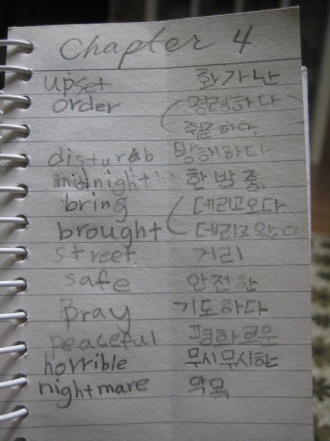 Chapter 4
upset 화가난
order 명령하다
주문하다.
disturb 방해하다.
midnight 한밤중
bring 데리고오다
brought 데리고왔다
street 거리
safe 안전한
pray 기도하다
peaceful 평화로운
horrible 무시무시한
nightmare 악몽